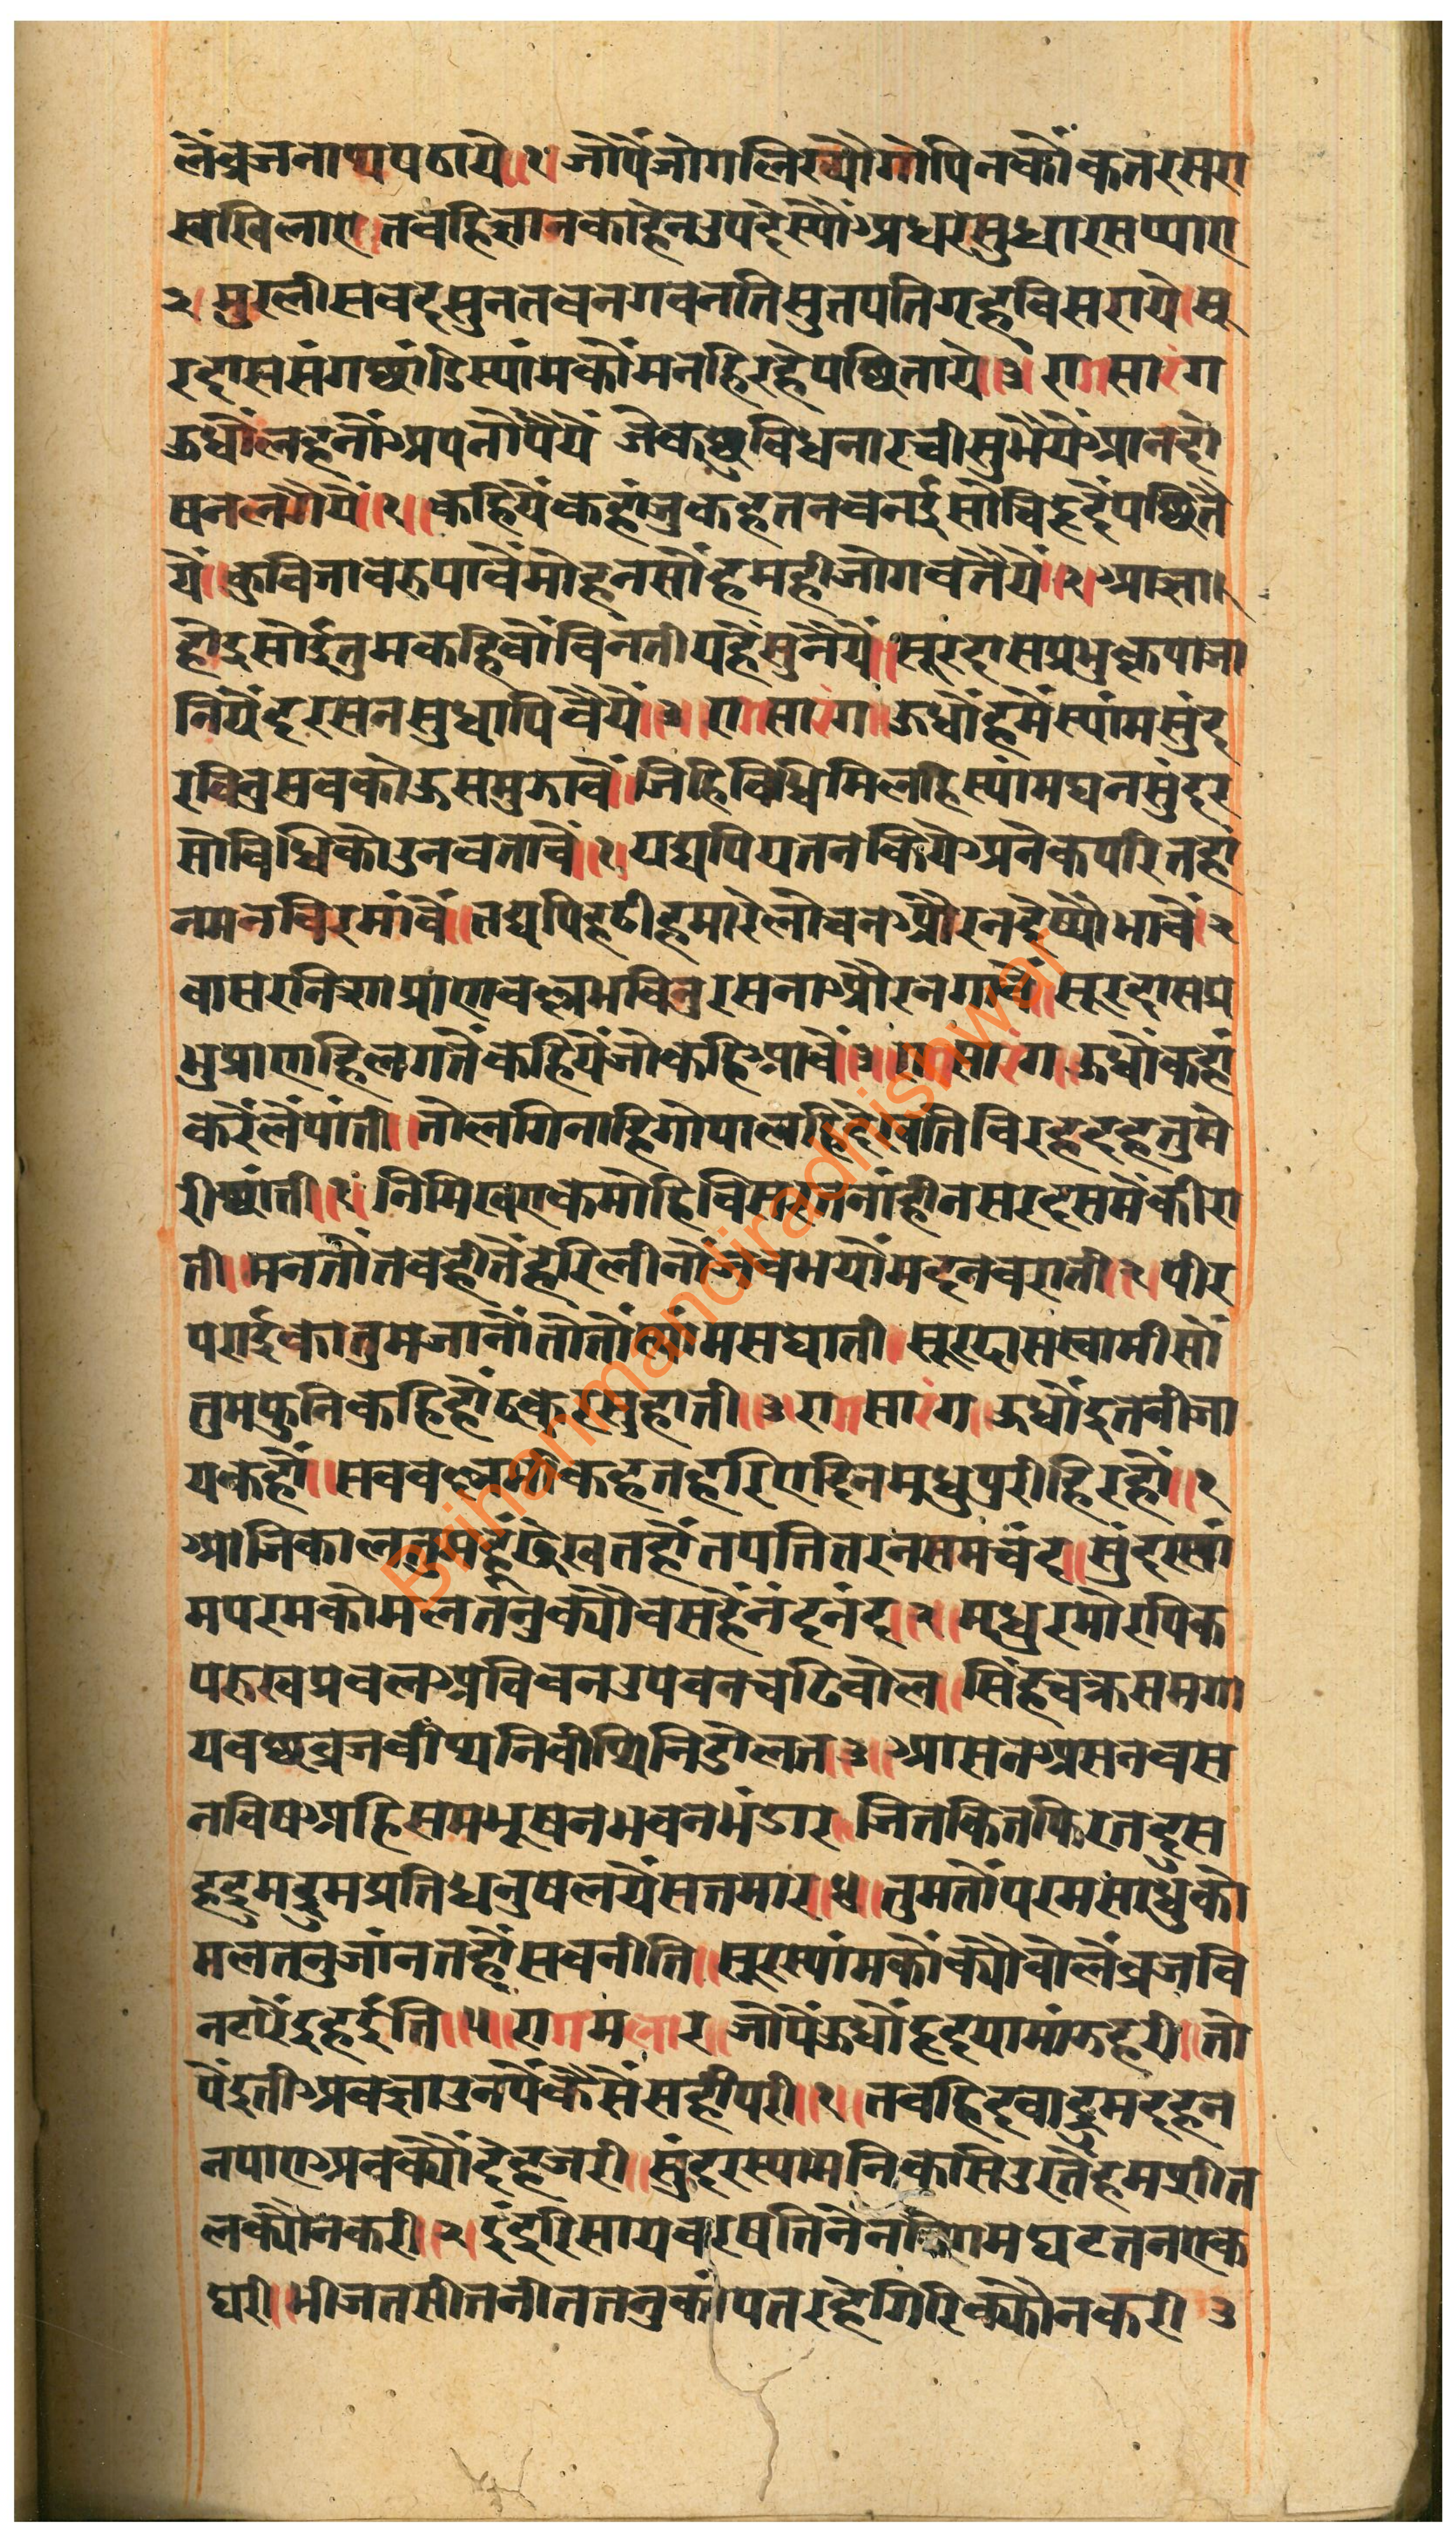 लैंव्रजनाथपठाये॥१॥जोपैंजोगलिख्योगोपिनकौंकतरसरा
सखिलाए॥तवहिज्ञानकाहेनउपदेस्यौअधरसुधारसप्याए
२॥मुरलीसवदसुनतवनगवनतिसुतपतिगृहविसराये॥सू
रदाससंगछांडिस्यांमकौंमनहिरहेपछिताये॥३॥रागसारंग
ऊधौलहनौंअपनौपैयैं जेकछुविधनारचीसुभैयैआनदो
षनलगैयैं॥१॥कहियैंकहांजुकहतनवनईसोचिहृदैंपछितै
यैं॥कुविजावरुपावैंमोहनसौंहमहीजोगवतैयैं॥२॥आज्ञा
होइसोईतुमकहिवौविनतीयहैसुनैयैं॥सूरदासप्रभुकृपाजा
नियैंदरसनसुधापिवैयैं॥३॥रागसारंग॥ऊधौंहमैंस्यांमसुंद
रविनुसवकोऊसमुझावैं॥जिहिविधिमिलहिस्यांमघनसुंदर
सोविधिकोउनवतावैं॥१॥यद्यपियतनकियेअनेकपरितहां
नमनविरमांवैं॥तद्यपिहठीहमारेलोचनऔरनदेष्यौभावैं॥२
वासरनिशाप्रांणवल्लभविनुरसनाऔरनगावैं॥सूरदासप्र
भुप्राणहिलगतैंकहियैंजोकहिआवैं॥३॥रागसारंग॥ऊधौकहां
करैंलैंपांती॥नोलगिनाहिगोपालहिदेषतिविरहदहतुमे
रीछांती॥१॥निमिखएकमोहिविसरतनांहीनसरदसमैंकीरा
ती॥मनतौंतवहीतैंहरिलीनौंजवभयौंमदनवराती॥२॥पीर
पराईकातुमजानौंतौतौंस्यांमसघाती॥सूरदासस्वामीसौं
तुमफुनिकहिहौंठकुरसुहाती॥३॥रागसारंग॥ऊधौंइतनीजा
यकहौं॥सववल्लभीकहतहरिएदिनमधुपुरीहिरहौं॥१
आजिकालतुमहूंदेखतहौंतपतितरनसमचंद॥सुंदरस्यां
मपरमकोमलतनुक्यौवसहैंनंदनंद॥२॥मधुरमोरपिक
परुखप्रवलअविवनउपवनचढिवोल॥सिंहवक्रसमगो
यवछव्रजवीथनिवीथिनिडोलत॥३॥आसनअसनवस
नविषअहिसमभूषनभवनभंडार॥जितकितफिरतदुस
हद्रुमद्रुमप्रतिधनुषलयैंसतमार॥४॥तुमतौंपरमसाधुको
मलतनुजांनतहौंसवनीति॥सूरस्यांमकौंक्यौवोलैंव्रजवि
नटारैंइहईति॥५॥रागमलार॥जौपैंऊधौंहृदयामांझहरी॥तौ
पैंइतीअवज्ञाउनपैंकैसैंसहीपरी॥१॥तवहिदवाद्रुमदहन
नपाएअवक्यौंदेहजरी॥सुंदरस्यामनिकसिउरतैंहमशीत
लक्यौनकरी॥२॥इंद्ररिसायवरषतिनैन मघटतनएक
घरी॥भीजतसीतनीततनुकांपतरहेगिरिक्यौनकरी॥३